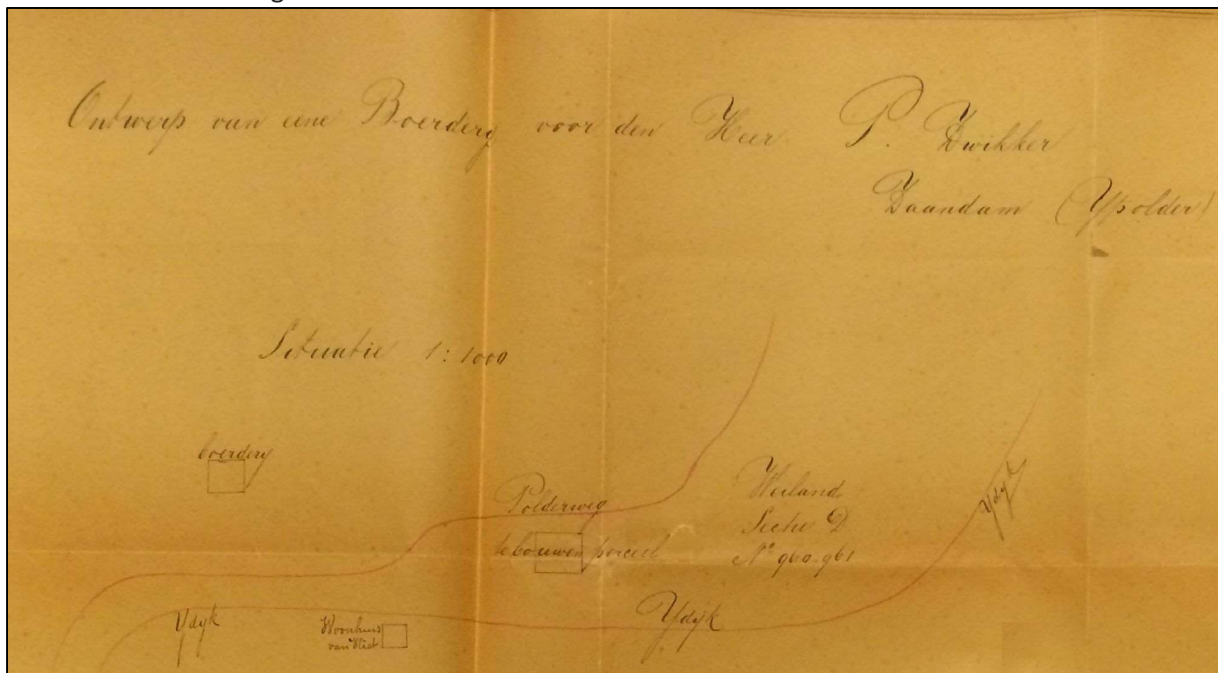 Ontwerp van eene Boerdery voor den Heer P. Zwikker
Zaandam (Ypolder)
Situatie 1:1000
boerdery
Polderweg
te bouwen perceel
Weiland
Sectie D
No 960.961
Ydyk
Ydyk
Woonhuis
van Vliet
Ydyk